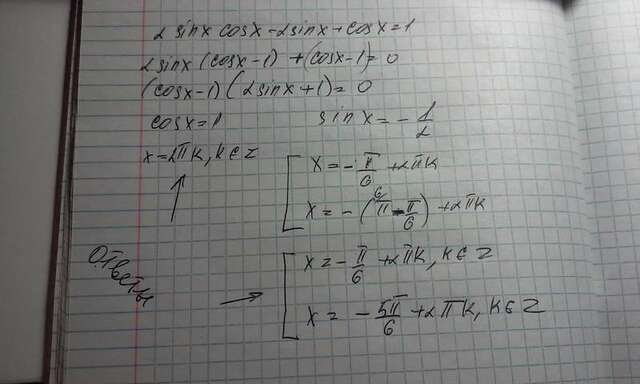 2 sinx cosx - 2sinx + cosx = 1
2sinx (cosx - 1) + (cosx - 1) = 0
(cosx - 1) (2sinx + 1) = 0
cosx = 1 sinx = - 1/2
x = 2πk, k ∈ Z
[ x = - π/6 + 2πk
x = - (6 π - π/6) + 2πk
Ответы
[ x = - π/6 + 2πk, k ∈ Z
x = - 5π/6 + 2πk, k ∈ Z